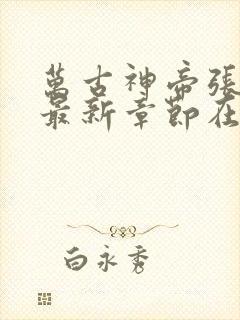 萬古神帝張
最新章節在
白永秀